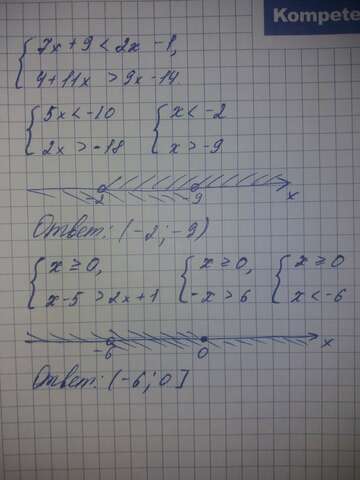 Kompete
7x + 9 < 2x - 1,
4 + 11x > 9x - 14
5x < -10 x < -2
2x > -18 x > -9
-2 -9 x
Ответ: (-2; -9)
x ≥ 0, x ≥ 0, x ≥ 0
x - 5 > 2x + 1 -x > 6 x < -6
-6 0 x
Ответ: (-6; 0]